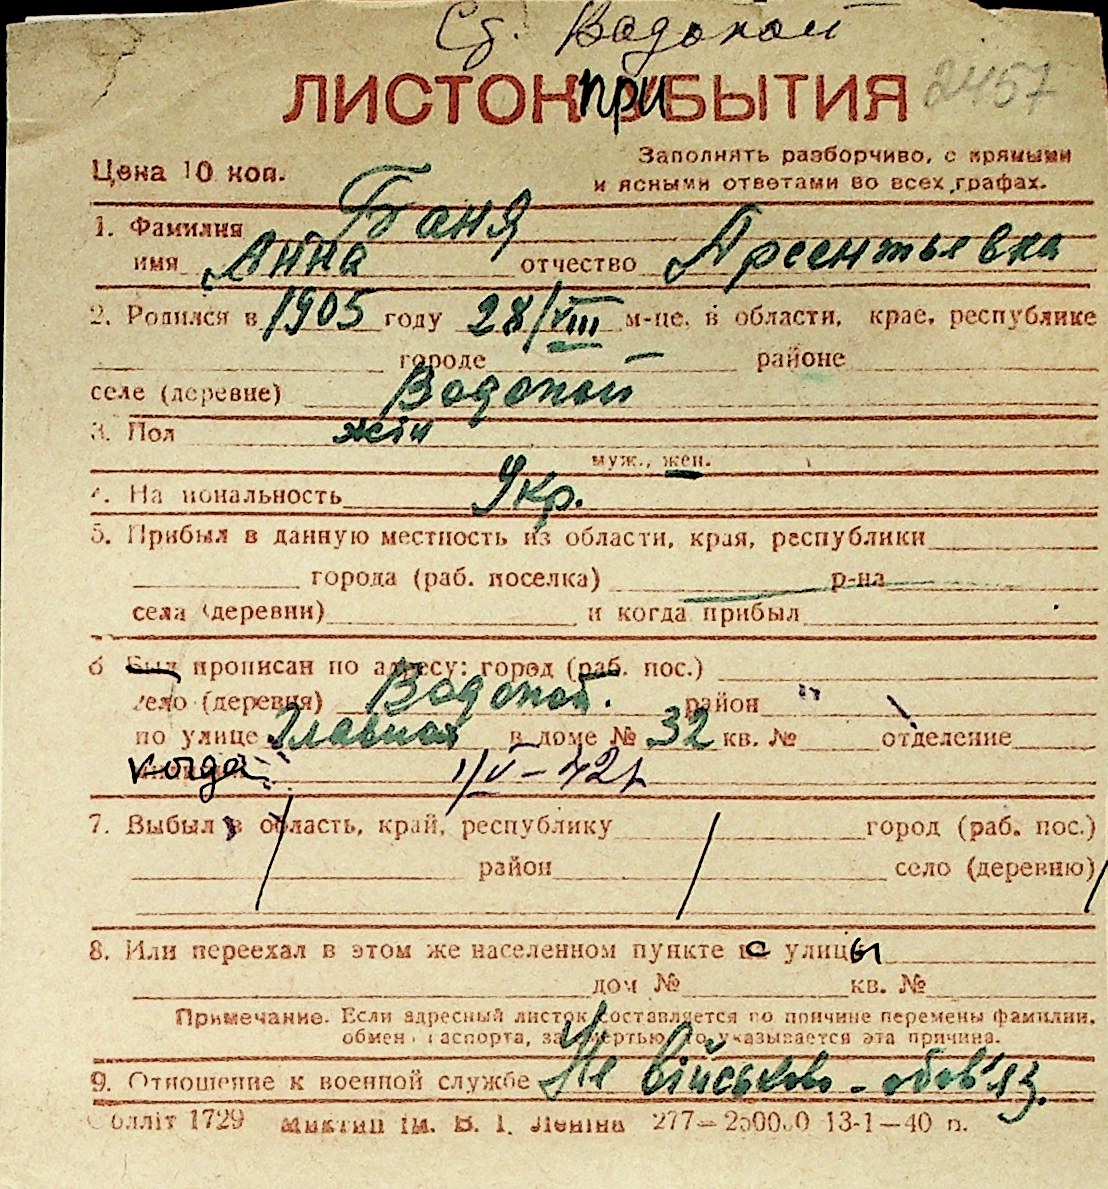 Сд. Водопой
ЛИСТОК ПРИБЫТИЯ 2457
Цена 10 коп.
Заполнять разборчиво, с прямыми
и ясными ответами во всех графах.
1. Фамилия Баня
имя Анна отчество Арсентьевна
2. Родился в 1905 году 28/VIII м-це, в области, крае, республике
городе районе
селе (деревне) Водопой
3. Пол жен
муж., жен.
4. Национальность Укр.
5. Прибыл в данную местность из области, края, республики
города (раб. поселка) р-на
села (деревни) и когда прибыл
6 Был прописан по адресу: город (раб. пос.)
село (деревня) Водопой. район
по улице Главная в доме № 32 кв. № отделение
когда 1/V-42г
7. Выбыл в область, край, республику город (раб. пос.)
район село (деревню)
8. Или переехал в этом же населенном пункте с улицы
дом № кв. №
Примечание. Если адресный листок составляется по причине перемены фамилии,
обмена паспорта, за смертью, то указывается эта причина.
9. Отношение к военной службе Не військово-обов'яз.
Облліт 1729 Миктип ім. В. І. Леніна 277—250000 13-1—40 п.